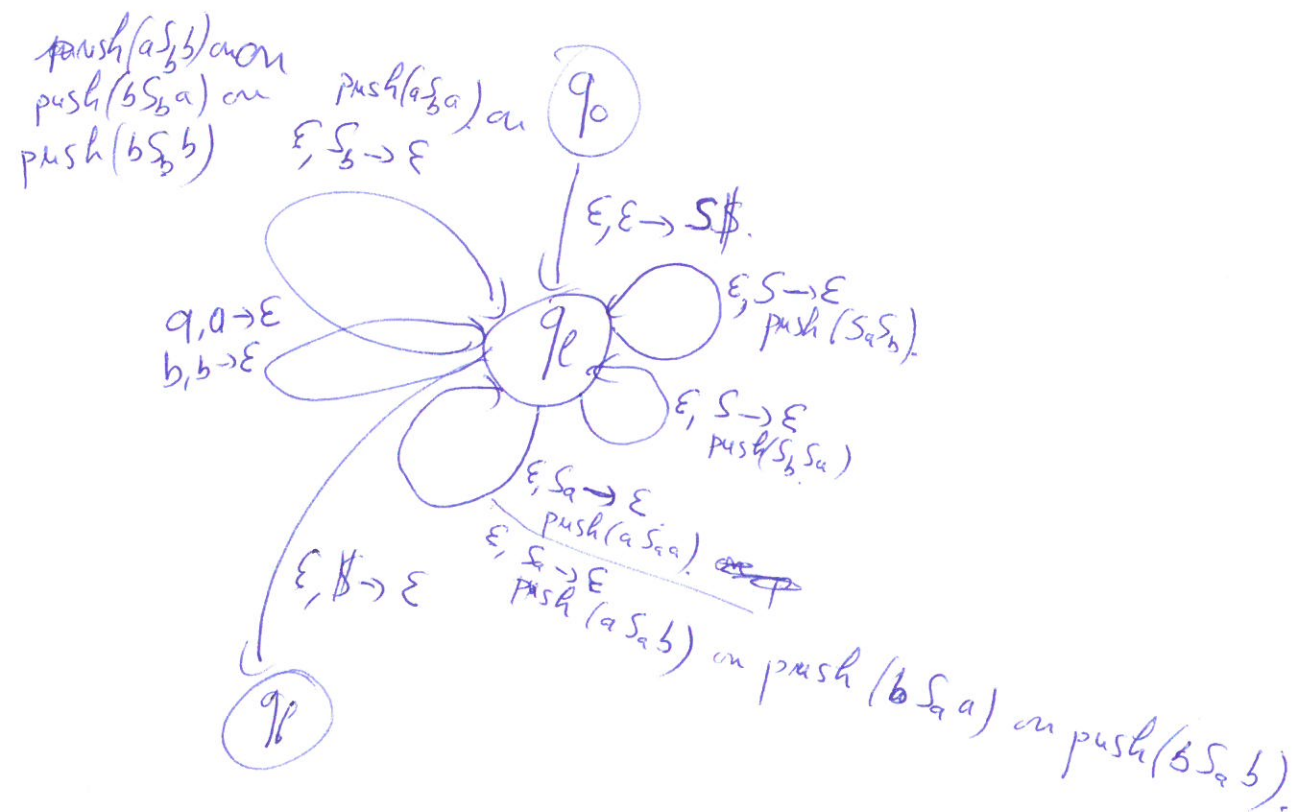 push(aS_bb) or
push(bS_ba) or
push(bS_bb)
push(aS_ba) or
ε, S_b → ε
q₀
ε, ε → S$.
ε, S → ε
push (S_aS_b).
a, a → ε
b, b → ε
q_l
ε, S → ε
push(S_b S_a)
ε, S_a → ε
push(a S_a a).
ε, S_a → ε
push (a S_a b) or push (b S_a a) or push(b S_a b).
ε, $ → ε